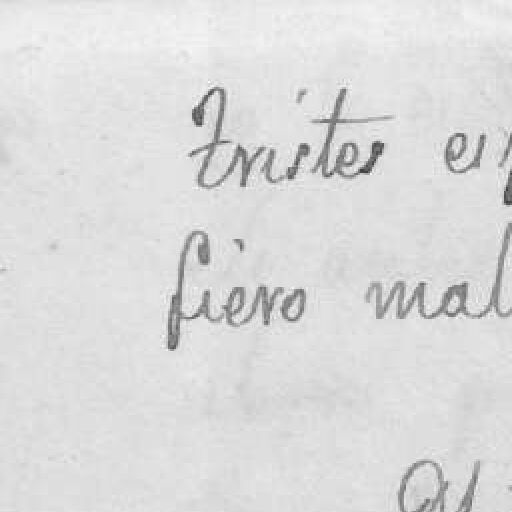 Tristes
fiero mal